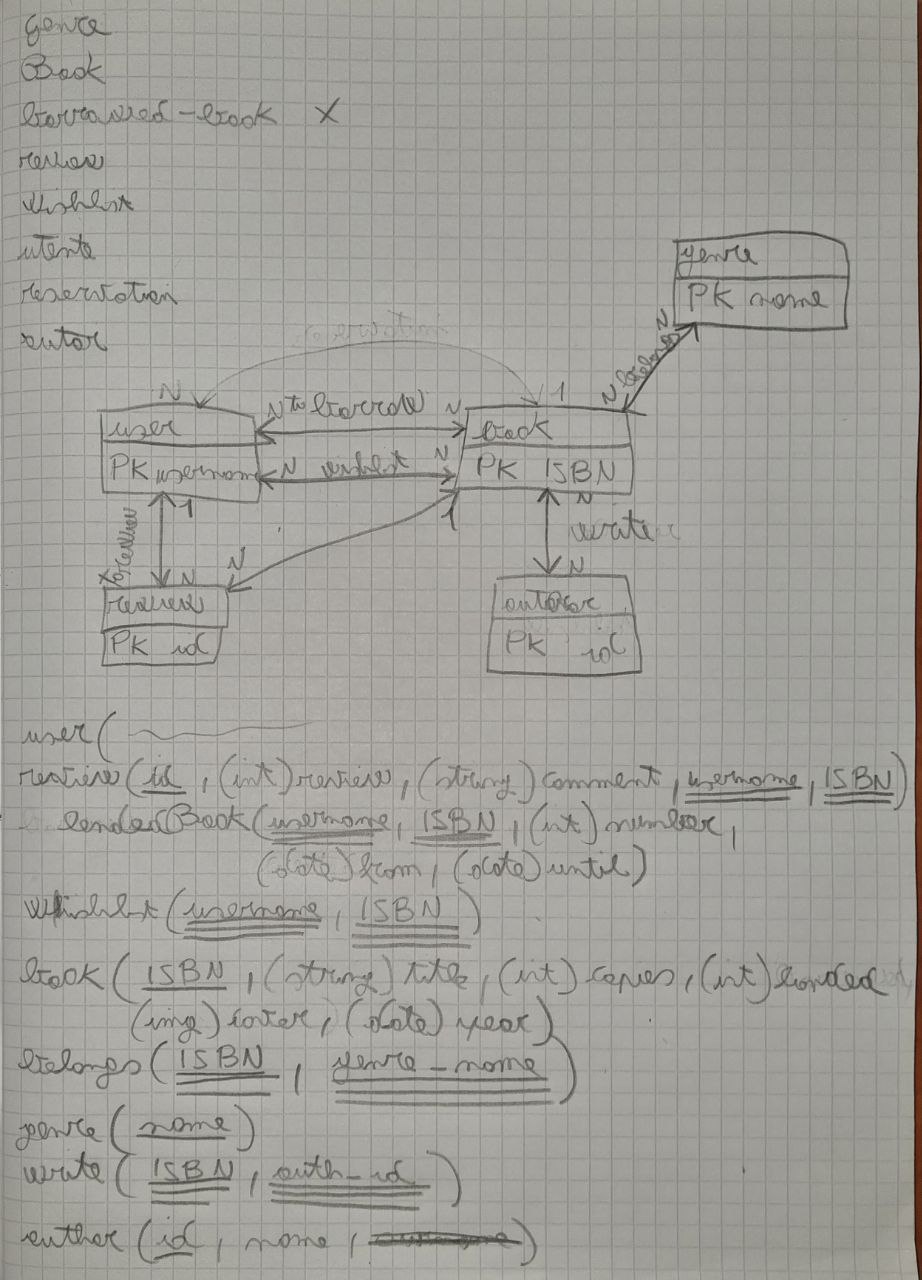 genre
Book
borrowed-book X
review
wishlist
utente
reservation
autor
genre
PK name
N
belongs
N
N 1
user
PK username
N to borrow N
N wishlist N
book
PK ISBN
1
to review
N
N
1
N
write
N
review
PK id
author
PK id
user(
review(id, (int)review, (string)comment, username, ISBN)
landedBook(username, ISBN, (int) number,
(date)from, (date)until)
wishlist(username, ISBN)
book(ISBN, (string)title, (int)copies, (int)landed
(img)cover, (date)year)
belongs(ISBN, genre-name)
genre(name)
write(ISBN, auth-id)
author(id, name,